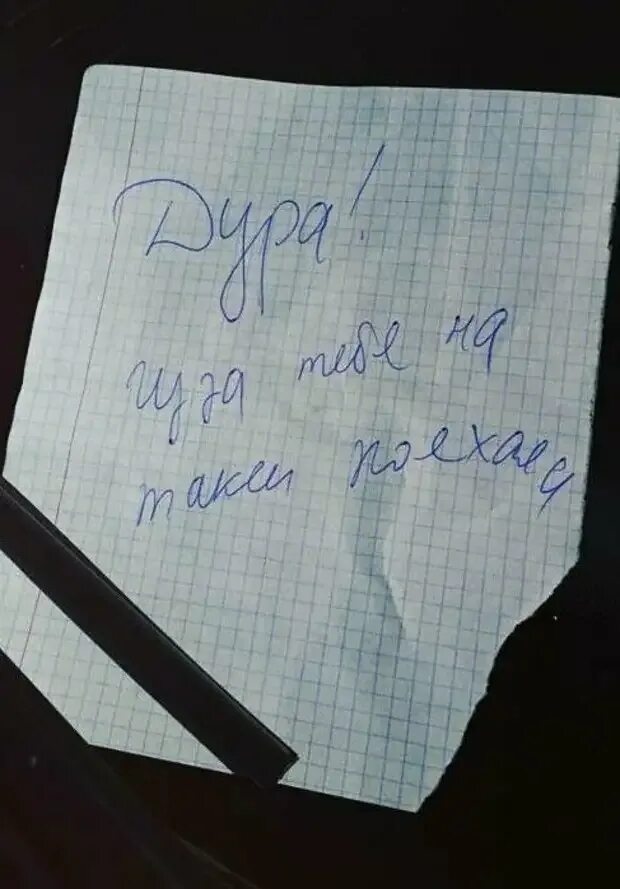 Дура!
изза тебе на
такси поехала